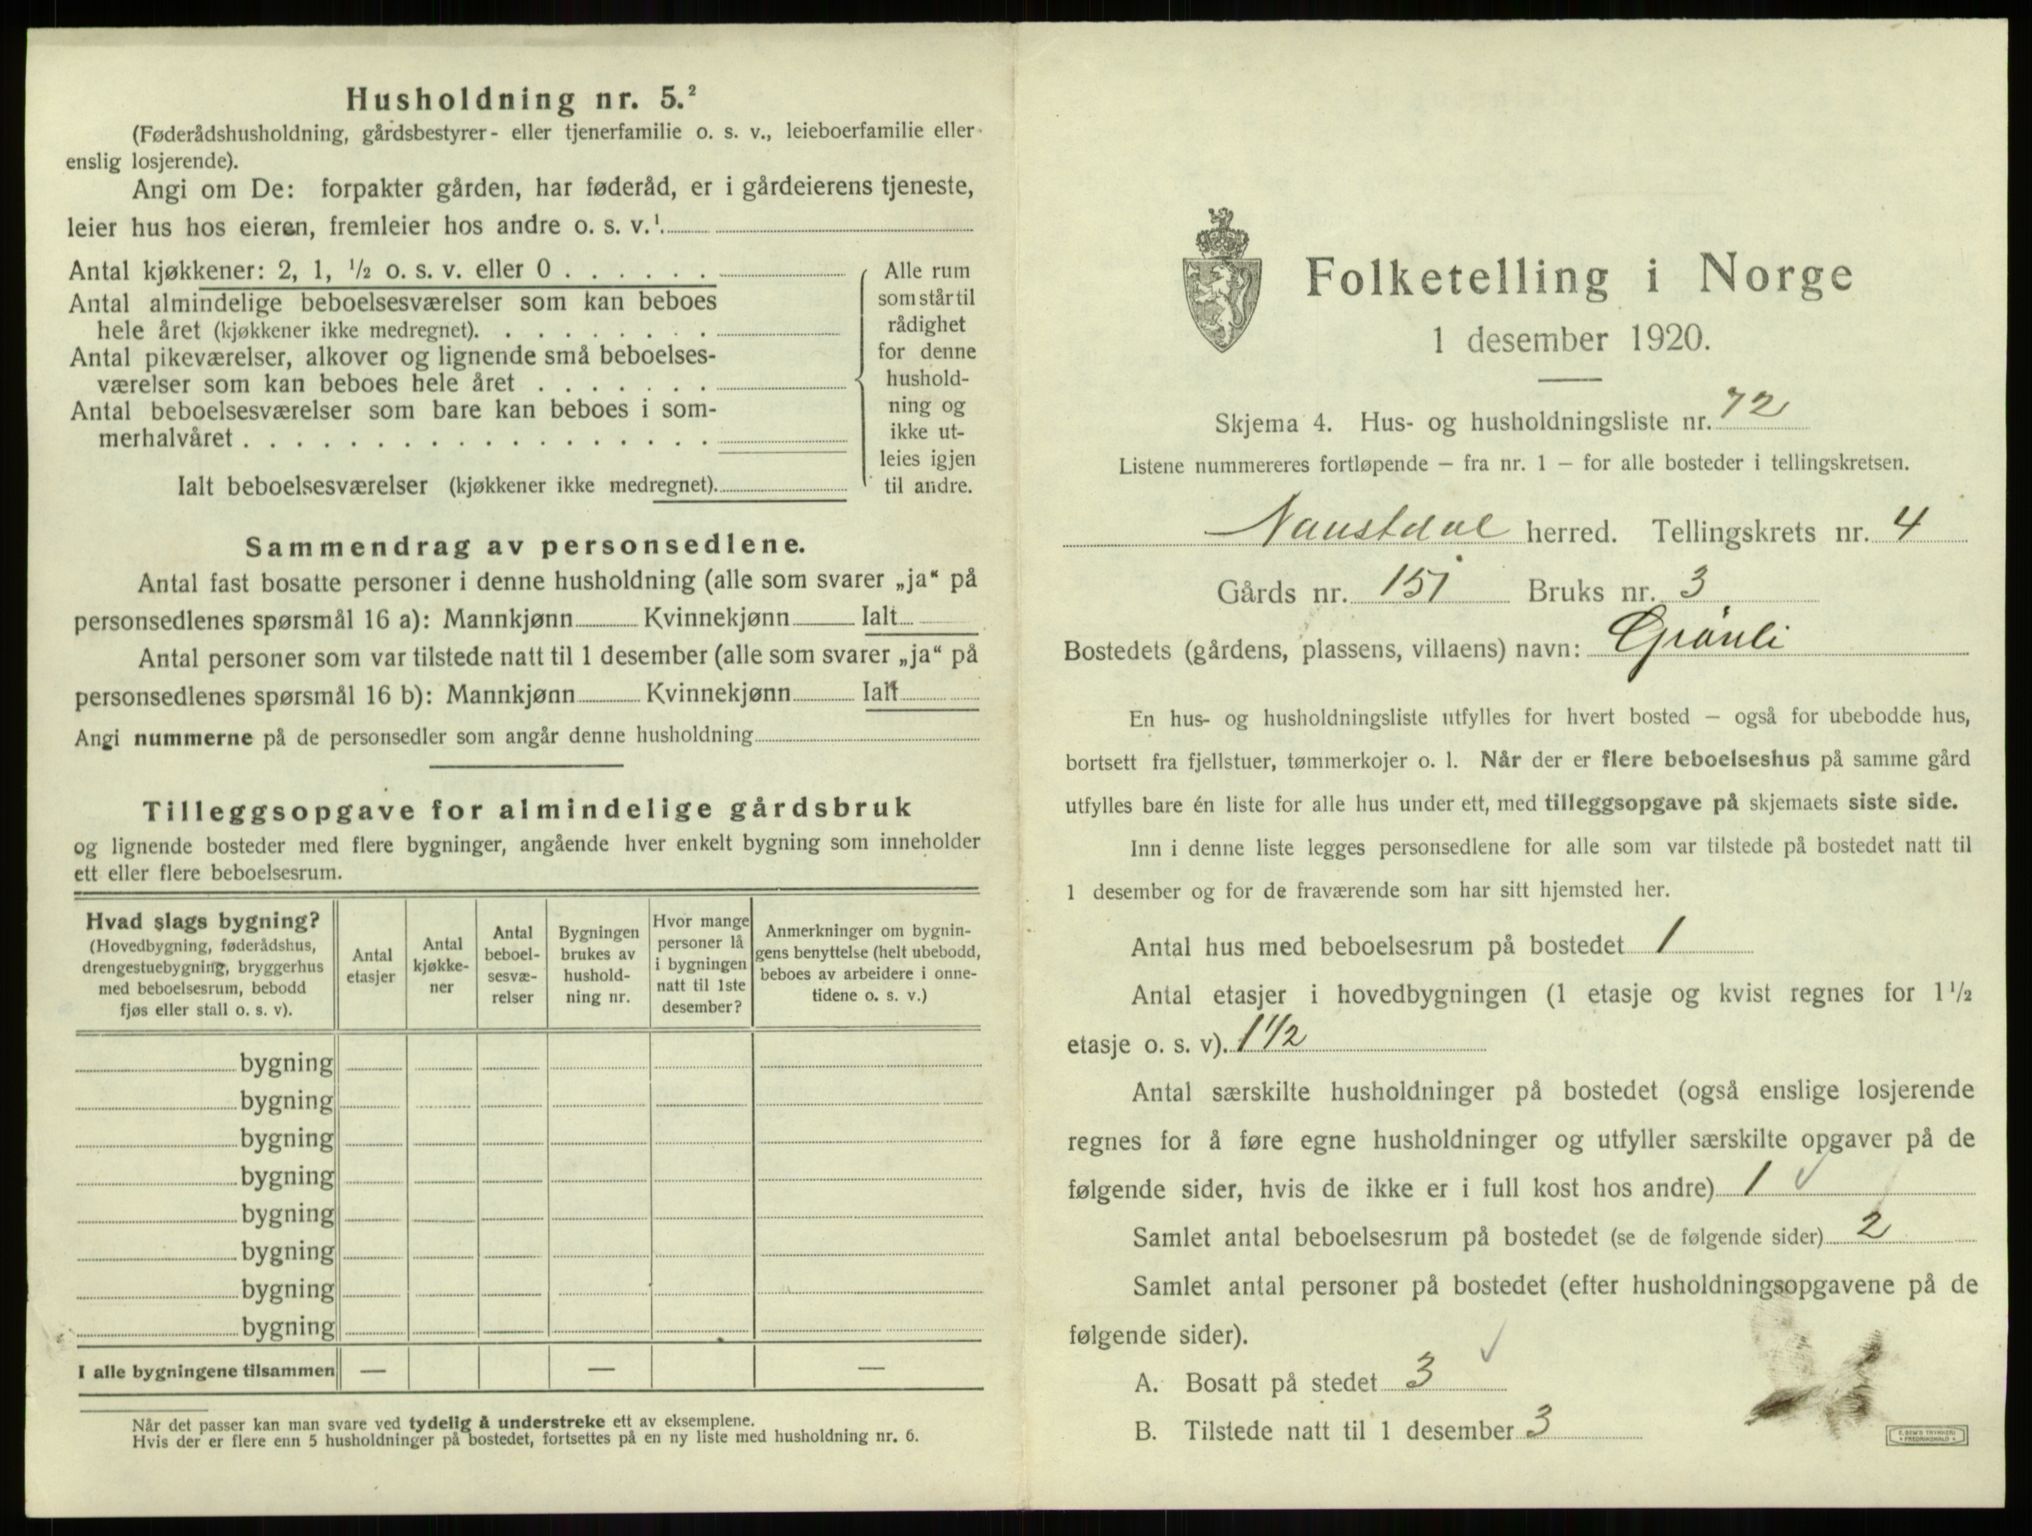 Husholdning nr. 5.²
(Føderådshusholdning, gårdsbestyrer- eller tjenerfamilie o. s. v., leieboerfamilie eller
enslig losjerende).
Angi om De: forpakter gården, har føderåd, er i gårdeierens tjeneste,
leier hus hos eieren, fremleier hos andre o. s. v.¹
Antal kjøkkener: 2, 1, ½ o. s. v. eller 0 . . . . . .
Antal almindelige beboelsesværelser som kan beboes
hele året (kjøkkener ikke medregnet). . . . . . . .
Antal pikeværelser, alkover og lignende små beboelses-
værelser som kan beboes hele året . . . . . . .
Antal beboelsesværelser som bare kan beboes i som-
merhalvåret . . . . . . . . . . . . . . . . . .
Ialt beboelsesværelser (kjøkkener ikke medregnet).
Alle rum
som står til
rådighet
for denne
hushold-
ning og
ikke ut-
leies igjen
til andre.
Sammendrag av personsedlene.
Antal fast bosatte personer i denne husholdning (alle som svarer „ja“ på
personsedlenes spørsmål 16 a): Mannkjønn Kvinnekjønn Ialt
Antal personer som var tilstede natt til 1 desember (alle som svarer „ja“ på
personsedlenes spørsmål 16 b): Mannkjønn Kvinnekjønn Ialt
Angi nummerne på de personsedler som angår denne husholdning
Tilleggsopgave for almindelige gårdsbruk
og lignende bosteder med flere bygninger, angående hver enkelt bygning som inneholder
ett eller flere beboelsesrum.
Hvad slags bygning?
(Hovedbygning, føderådshus,
drengestuebygning, bryggerhus
med beboelsesrum, bebodd
fjøs eller stall o. s. v).
Antal
etasjer
Antal
kjøkke-
ner
Antal
beboel-
sesvæ-
relser
Bygningen
brukes av
hushold-
ning nr.
Hvor mange
personer lå
i bygningen
natt til 1ste
desember?
Anmerkninger om bygnin-
gens benyttelse (helt ubebodd,
beboes av arbeidere i onne-
tidene o. s. v.)
bygning
bygning
bygning
bygning
bygning
bygning
bygning
bygning
I alle bygningene tilsammen — — —
Når det passer kan man svare ved tydelig å understreke ett av eksemplene.
Hvis der er flere enn 5 husholdninger på bostedet, fortsettes på en ny liste med husholdning nr. 6.
Folketelling i Norge
1 desember 1920.
Skjema 4. Hus- og husholdningsliste nr. 72
Listene nummereres fortløpende – fra nr. 1 – for alle bosteder i tellingskretsen.
Naustdal herred. Tellingskrets nr. 4
Gårds nr. 151 Bruks nr. 3
Bostedets (gårdens, plassens, villaens) navn: Grönli
En hus- og husholdningsliste utfylles for hvert bosted – også for ubebodde hus,
bortsett fra fjellstuer, tømmerkojer o. l. Når der er flere beboelseshus på samme gård
utfylles bare én liste for alle hus under ett, med tilleggsopgave på skjemaets siste side.
Inn i denne liste legges personsedlene for alle som var tilstede på bostedet natt til
1 desember og for de fraværende som har sitt hjemsted her.
Antal hus med beboelsesrum på bostedet 1
Antal etasjer i hovedbygningen (1 etasje og kvist regnes for 1½
etasje o. s. v). 1½
Antal særskilte husholdninger på bostedet (også enslige losjerende
regnes for å føre egne husholdninger og utfyller særskilte opgaver på de
følgende sider, hvis de ikke er i full kost hos andre) 1 ✓
Samlet antal beboelsesrum på bostedet (se de følgende sider) 2
Samlet antal personer på bostedet (efter husholdningsopgavene på de
følgende sider).
A. Bosatt på stedet 3 ✓
B. Tilstede natt til 1 desember 3
E. SEM'S TRYKKERI
• FREDRIKSHALD •